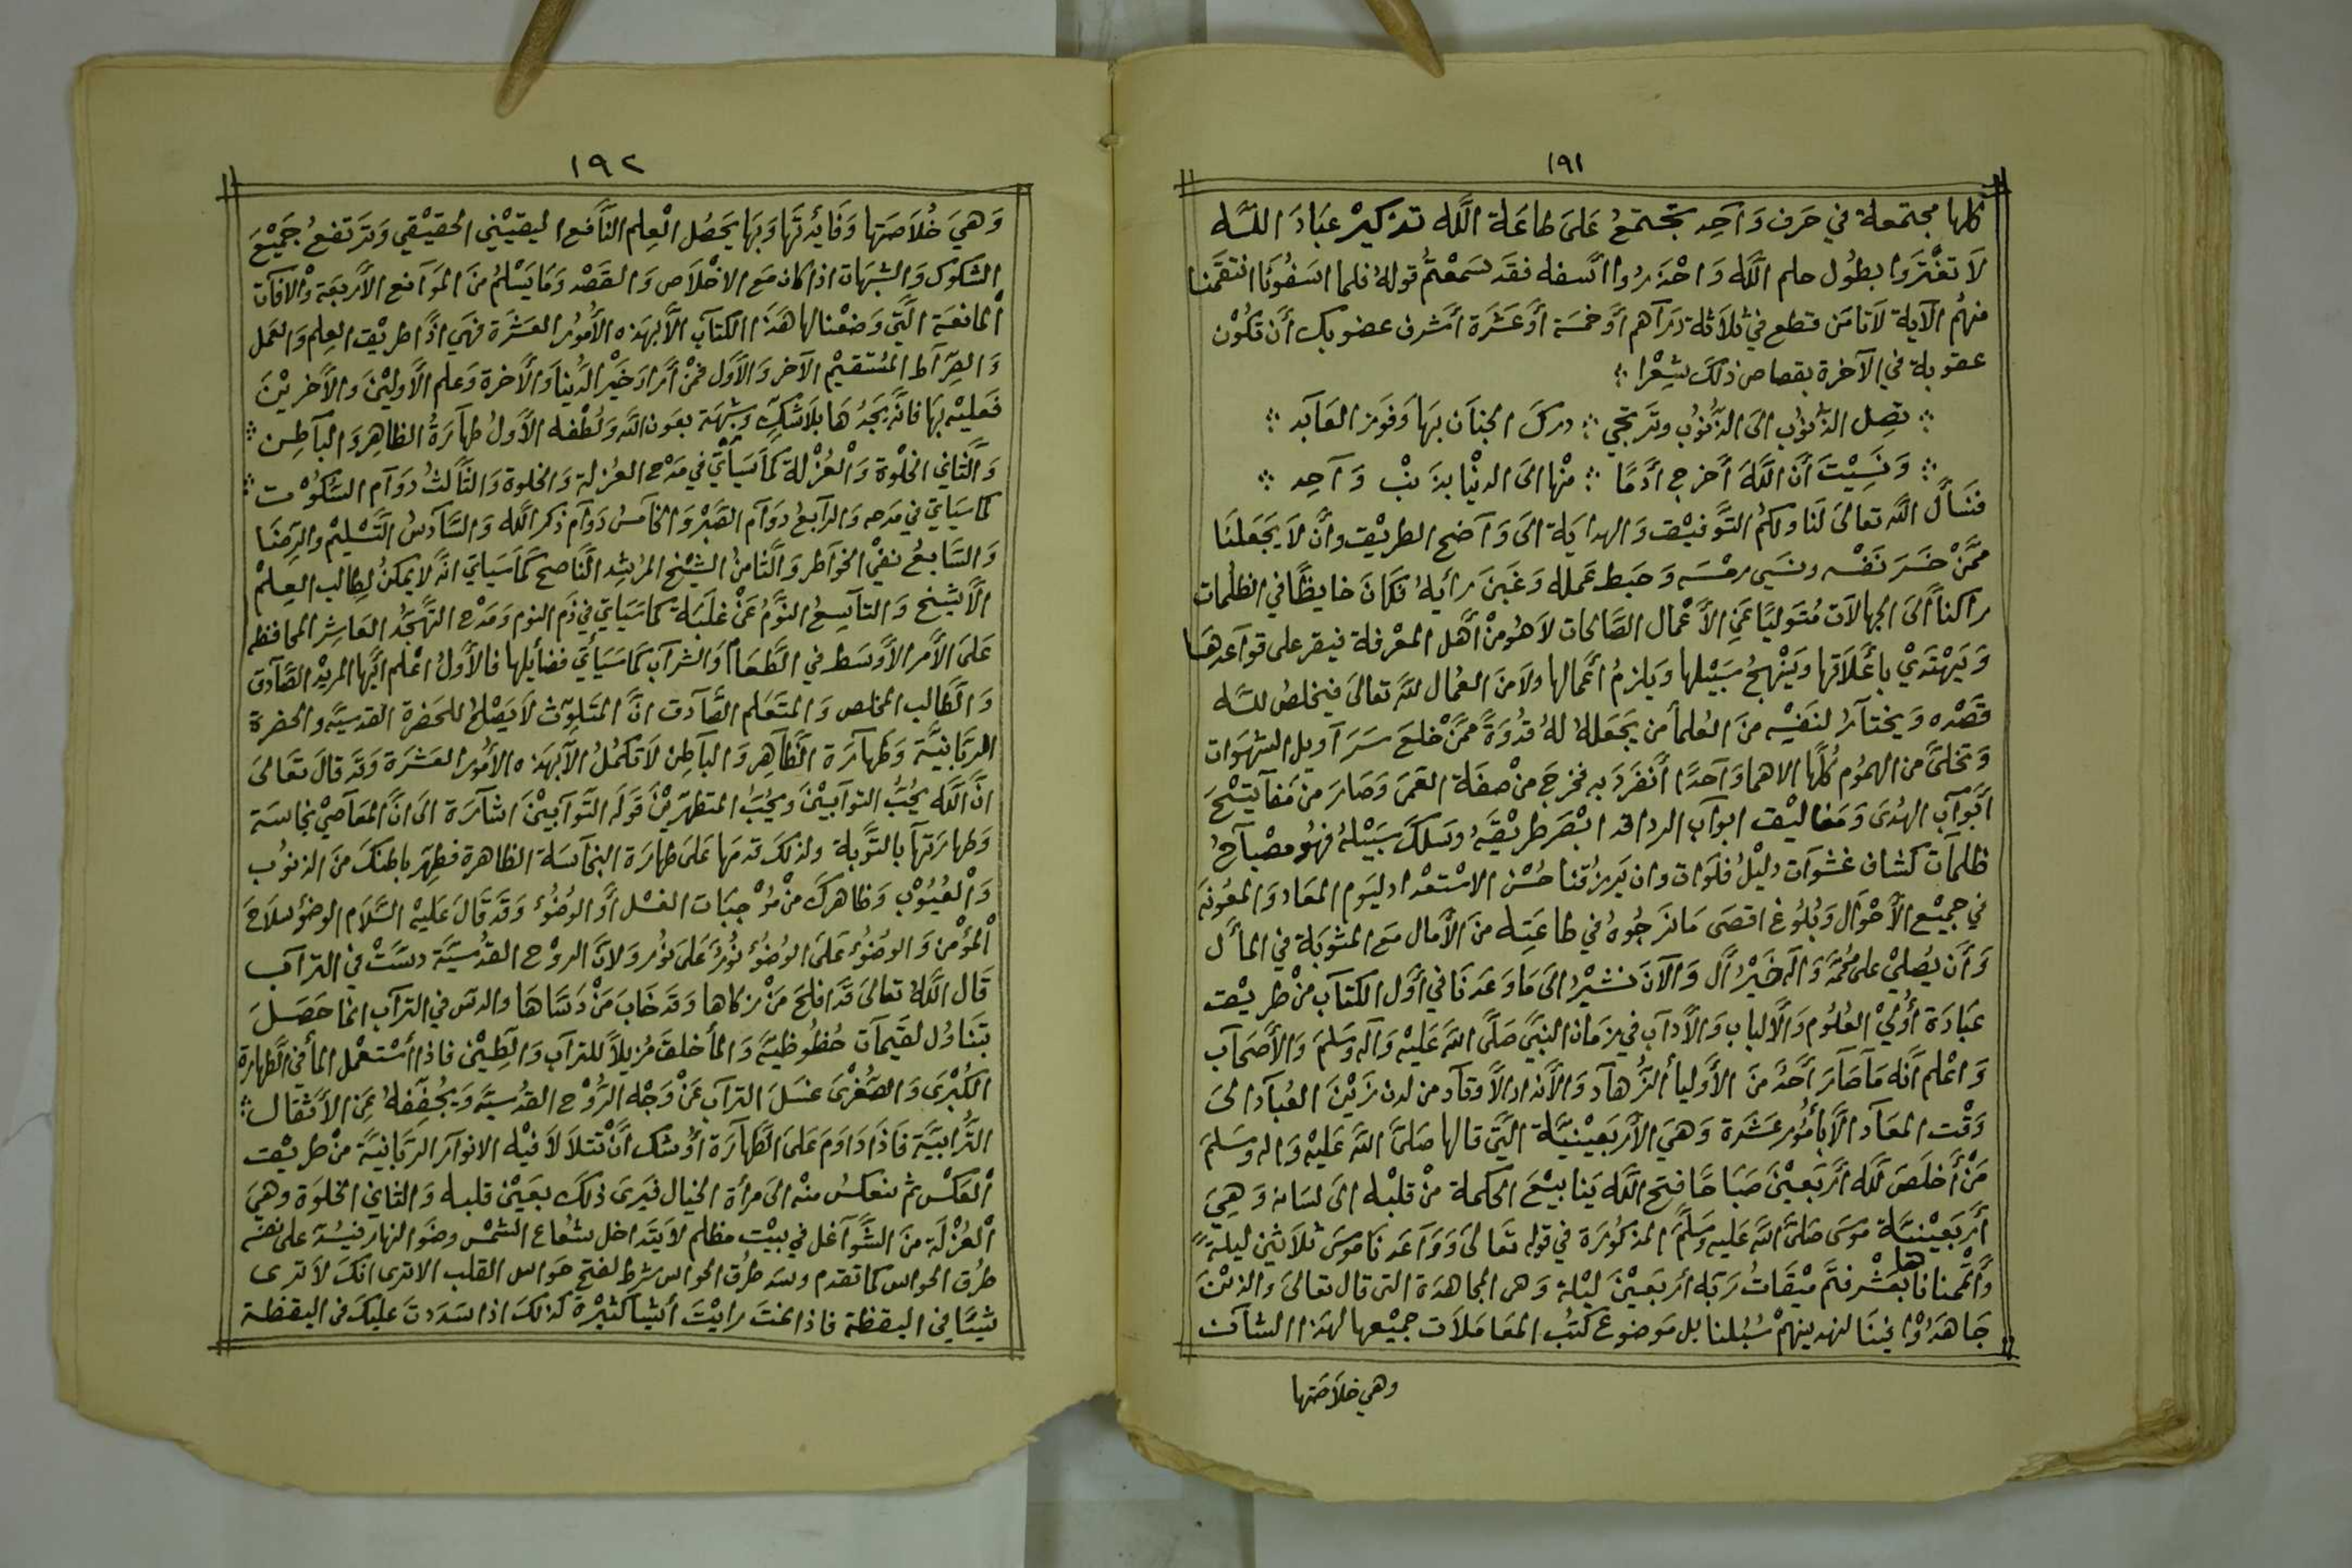 ١٩١
كلها مجتمعة في حرف وَاحِد تجتمعُ عَلىَ طاعَة اللَّه تذكيرْ عبَادَ اللّه
لاَ تغْتَروا بطُول حلم اللَّه وَاحْذَرُوا السفه فقَد سَمعْتمُ قولهُ فلما اسَفُونَا انتقَمْنا
منهُم الآية لاَ تامَن قطع في ثلاَثة دَرَاهم أوْ خمسَة أوْ عَشَرة أشرف عضو بك أن تكُوْن
عقوبة في الآخرة بقصاص ذلكَ شِعْرا ؛
؛ تصِل الذّنوُب الىَ الذّنوُب وتَرتجي ؛ درَكَ الجنَان بهَا وَفوَز العَابد ؛
؛ وَنَسِيْتَ أنّ اللَّهَ أخرج ادَمًا ؛ منْها الىَ الدنْيا بذَنبْ وَاحِد ؛
فنَسأل اللَّه تعالىَ لنَا ولكمُ التّوَفيْق وَالهدايَة الىَ وَاضح الطريْق وأن لاَ يجَعَلنَا
ممّنْ خسَرَ نَفْسه ونسَي رمْسَه وَحَبط عَمله وَغَبنَ رايهُ فكانَ خابطًا في الظلُمات
راكنًا الىَ الجهالاَت مُتَوليًا عَنِ الأعْمال الصّالحات لاَ هُو منْ أهل المعْرفة فيقر على قواعدهَا
وَيَهْتدَيْ بأعْلاَقها وَينْهجُ سَبيْلها وَيلزمُ أعْمالها ولاَ منَ العُمال للَّه تعالىَ فيخلصُ للّه
قصْده وَيختارُ لنَفْسِه منَ العُلمأ من يجَعَلهُ لهُ قدُوَةً ممّنْ خلعَ سَرَاويل الشهَوات
وَتخلىَّ من الهمُوم كُلّها الا هما وَاحدًا أنفرَد به فخرجَ منْ صفَة العَمىَ وَصَارَ من مَفاتيْحَ
أبوَاب الهدُىَ وَمَغاليْق ابواب الردا قد ابْصَر طريْقَهُ وسَلكَ سَبيْلهُ فهُو مصْباحُ
ظلمات كشاف غشوَات دليْلُ فلوَات وان يَرزُقنا حُسْن الاسْتعْداد ليَوم المعَاد وَالمعُونَه
في جميْع الأحْوَال وَبُلوُغ اقصىَ مَا نَرجُوهُ في طاعَتِه منَ الأمال مَع المثوبَة في المأل
وَأن يُصَليْ على محُمَّد وَاله خَيْرُ أل وَالآنَ نشيْرُ الىَ مَا وَعَدنَا في أوّل الكتاب منْ طريْق
عبَادَة أوْليْ العُلُوم وَالألباب وَالأداب في زمَان النبّي صَلىَّ اللَّه عَليْه وَاله وَسَلمَ وَالأصَحاب
وَاعْلم أنّه مَا صَارَ أحَدٌ منَ الأوليأ الزُّهاد وَالأنداد الأوقاد من لدن زيْنَ العُباد الىَ
وَقْت المعَاد الاّ بأمُور عَشرَة وَهيَ الأرْبَعيْنيَّة التَّي قالها صَلىَّ اللَّه عَليْه وَاله وسَلمَ
مَنْ أخلصَ للَّه أرْبَعيْنَ صبَاحًا فتح اللَّه ينَابيْعَ الحكمة منْ قلبْه الىَ لسَانه وَهيَ
أرْبَعيْنيَّة موُسىَ صَلىَّ اللَّه عَليه وَسَلمَ المذكوُرَة في قوله تعَالىَ وَوَاعَدنَا موُسىَ ثلاَثيَن ليلةً
وَأتممنا ها بعَشْر فتَمّ ميْقَاتُ رَبّه أربَعيْنَ ليْلة وَهى المجاهدَة التى قال تعالىَ وَالذيْنَ
جَاهدَوُا فينَا لنهدينهم سُبُلنا بل مَوضوع كتُب المعَامَلاَت جميْعها لهذَا الشان
وهي خلاَصَتها
١٩٢
وَهيَ خُلاَصَتها وَفَائِدتَها وَبهَا يَحصُل الْعِلم النَّافع اليقيْني الحقيْقي وَتَرتفعُ جَميْعَ
الشكوُك وَالشبهَات اذا كان مَع الاخْلاَص وَالقصْد وَمَا يَسْلمُ منَ الموَانع الأرْبعَة وَالافات
المانعَة التَّي وَضعْنا لها هَذا الكتاب الاّ بهَذه الأمُور العَشرَة فهَي اذًا طريْق العِلم وَالعَمل
وَالصِّراط المُسْتقيْم الآخر وَالأول فمَنْ أرَادَ خَيْر الدُّنيا وَالأخرة وَعلم الأوليْنَ والأخريْنَ
فعَليْه بهَا فانّه يجدُ هَا بلاَ شكٍّ وَشبهَة بعَون اللَّه وَلُطْفه الأوّلُ طهارَةُ الظاهِر وَالباطِن ؛
وَالثّاني الخلْوة وَالْعُزْلة كمَا سَيَأتي في مَدْح العُزلة وَالخلوة وَالثّالثُ دوَام السُّكوُت ؛
كما سَيَاتي في مَدحه وَالرابعُ دوَام الصَّبْر وَالخامسُ دوَام ذكر اللَّه وَالسَّادسُ التَّسْليْم والرضَا
وَالسّابعُ نفيْ الخواطر وَالثّامنُ الشيْخ المرُشِد النَّاصح كمَا سَيَاتي انّه لا يمكنُ لِطالب العِلمْ
الاّ بشيخ وَالتاسِعُ النَّوْمُ عَنْ غلَبَة كما سَيَاتي في ذَم النوم وَمَدْح التهجُّد العَاشِر المحافظه
عَلىَ الأمر الأوسَط في الطَّعَام وَالشراب كمَا سَيَأتي فضأيلها فالأوَّلُ اعْلم ايّها المريْد الصَّادق
وَالطَّالب المخلص وَالمتعَلم الصَّادق انَّ المتَلوّث لاَ يَصْلحُ للحَضرة القدسيَّه والحضرة
الربَّانيَّة وَطهارَة الظَّاهِر وَالباطِن لاَ تكمُلُ الاّ بهَذه الأمُور العَشرَة وَقد قالَ تعَالىَ
انَّ اللَّه يُحبُّ التوابيْنَ ويُحبُّ المتطهّريْنَ قولَه التَّوابيْنَ اشارَة الىَ انَّ المعَاصيْ نجاسَة
وَطهارَتها بالتَّوْبة ولذلكَ قدمهَا عَلىَ طهارَة النجاسَة الظاهرة فطِهّر باطنكَ منَ الذنوُب
وَالْعُيُوْب وَظاهركَ منْ مُوْجبَات الغسْل أو الوضُوُء وَقدَ قَالَ عَليْه السَّلاَم الوضؤ سلاَحَ
الْمؤْمن وَالوضُوُء عَلىَ الوضُوُء نوُرٌ عَلىَ نوُر وَلانَّ الروْح القدُسيَّة دسَّتْ في التراب
قال اللَّهُ تعالىَ قدَ افلَحَ مَنْ زكاها وَقد خَابَ مَنْ دَسَّاهَا والدس في التراب انما حَصَلَ
بتَناوُل لقيمات حُظوُظيَّه وَالمأ خلقَ مُزيلاً للتراب وَالطِّيْن فاذا أسْتعْمل المأ في الطَّهارة
الكُبْرىَ وَالصّغْرىَ غسَلَ التراب عَنْ وَجْه الرُّوْح القدُسيَّه وَيُجفّفهُ عَنِ الاَثقال ؛
التُّرابيَّة فاذَا دَاوَمَ عَلىَ الطَّهارَة أوْشك أنْ تتلاَلاَ فيْه الانوار الربَّانيَّة منْ طريْق
العَكْس ثم ينعكسُ منْه الىَ مرأة الخيال فيرىَ ذلكَ بعَيْن قلبه وَالثاني الخلوَة وهيَ
الْعُزْلَة منَ الشَّوَاغل في بيْت مظلم لاَ يتَداخل شعُاع الشمْس وضَو النهار فيَسُدّ على نفسَه
طرُق الحواس كما تقدم وسَد طرُق الحواس شرط لفتح حوَاس القلب الا ترى انكَ لاَ ترى
شيئًا في اليقظة فاذا نمتَ رايْتَ أشيَا كثيْرة كذلكَ اذا سَدَدتَ عليكَ في اليقظة